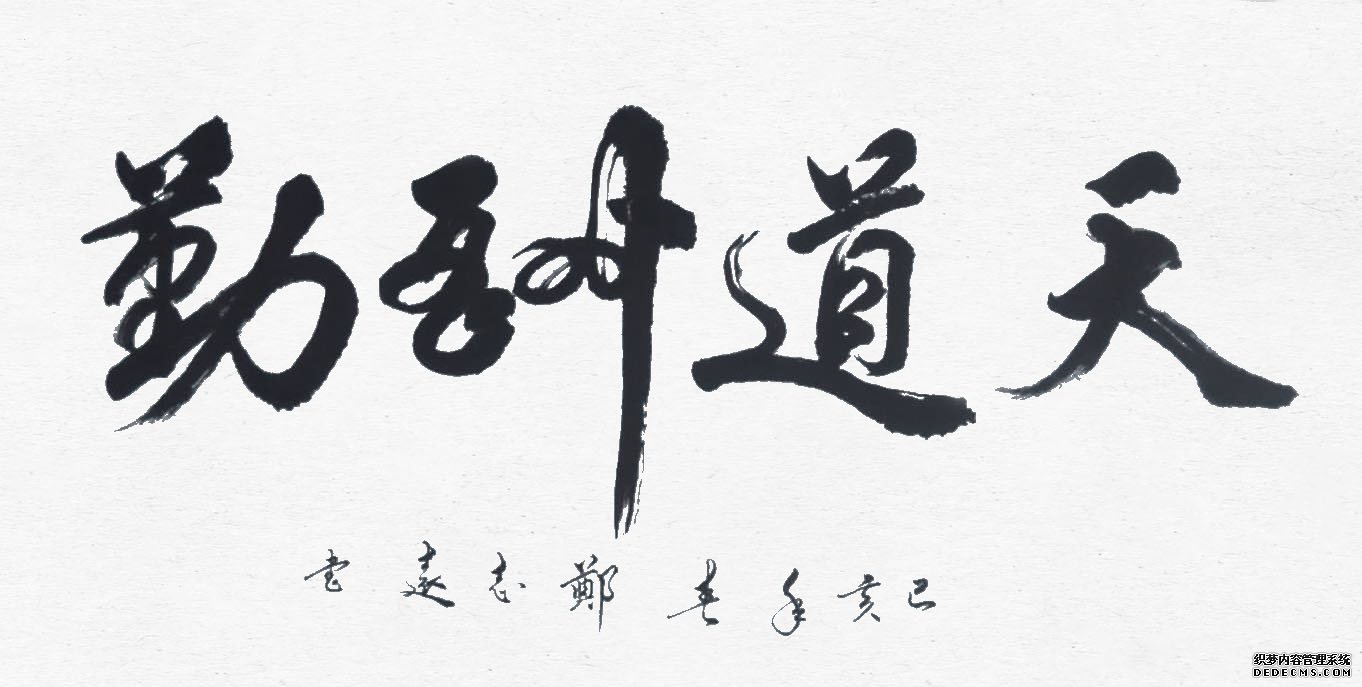 天道酬勤
己亥年春鄭志遠書
织梦内容管理系统
DEDECMS.COM